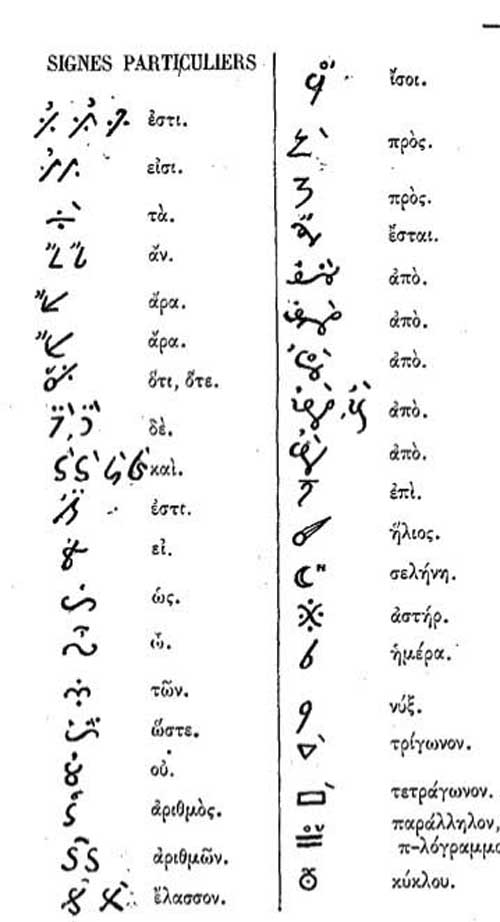 SIGNES PARTICULIERS
ἐστι.
εἰσι.
τὰ.
ἄν.
ἄρα.
ἄρα.
ὅτι, ὅτε.
δὲ.
καὶ.
ἐστι.
εἰ.
ὡς.
ὦ.
τῶν.
ὥστε.
οὐ.
ἀριθμὸς.
ἀριθμῶν.
ἔλασσον.
ἴσοι.
πρὸς.
πρὸς.
ἔσται.
ἀπὸ.
ἀπὸ.
ἀπὸ.
ἀπὸ.
ἀπὸ.
ἐπὶ.
ἥλιος.
σελήνη.
ἀστήρ.
ἡμέρα.
νύξ.
τρίγωνον.
τετράγωνον.
παράλληλον,
π-λόγραμμο
κύκλου.